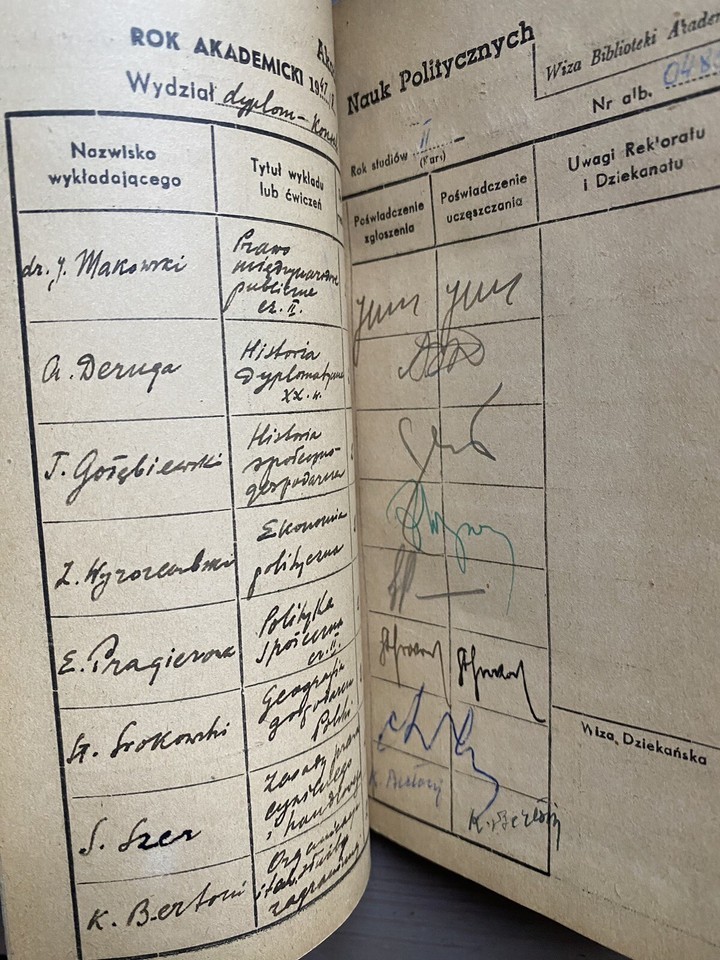 Aka
ROK AKADEMICKI 1947/
Wydział dyplom-Konsul
Nazwisko
wykładającego
Tytuł wykładu
lub ćwiczeń
dr. J. Makowski
Prawo
międzynarodowe
publiczne
cz. II.
A. Deruga
Historia
Dyplomatyczna
XX. w.
J. Gołębiewski
Historia
społeczno-
gospodarcza
Z. Wyrozembski
Ekonomia
polityczna
E. Pragierowa
Polityka
Społeczna
cz. II.
St. Srokowski
Geografia
gospodarcza
Polski
S. Szer
Zasady prawa
cywilnego
i handlowego
K. Bertoni
Organizacja
służby
zagranicznej
Nauk Politycznych
Wiza Biblioteki Akadem
Nr alb. 048
Rok studiów II
(Kurs)
Poświadczenie
zgłoszenia
Poświadczenie
uczęszczania
Uwagi Rektoratu
i Dziekanatu
K. Bertoni
K. Bertoni
Wiza Dziekańska